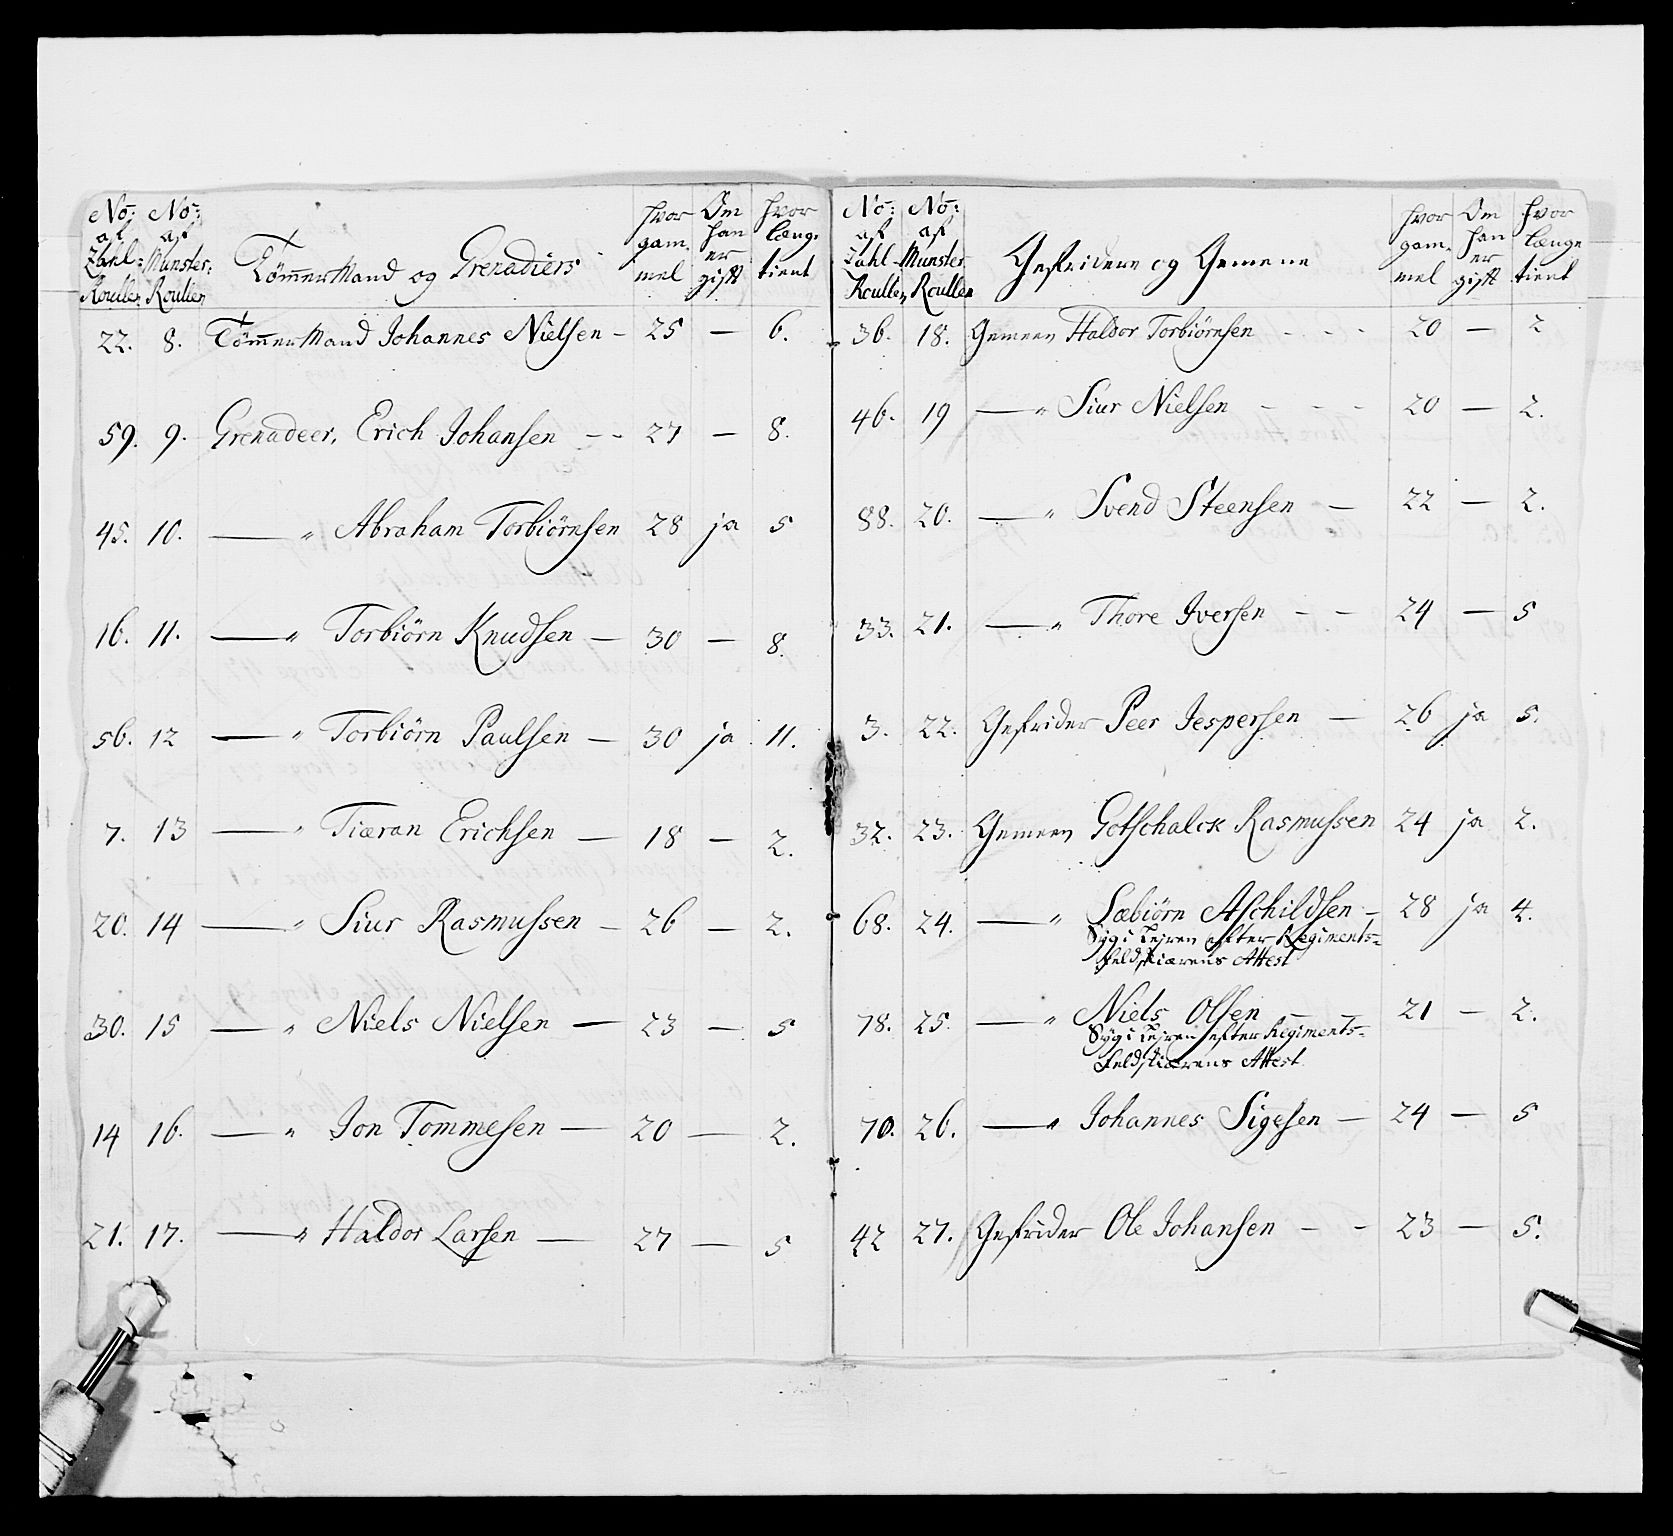 No: af Zahl: Roullen No: af Munster: Roullen Tömmer Mand og Grenadiers hvor gam mel Om han er gift hvor længe tient
22. 8. Tömmer Mand Johannes Nielsen - 25 — 6.
59. 9. Grenadeer, Erich Johansen - - 27 — 8.
45. 10. — " Abraham Torbiörnsen 28 ja 5
16. 11. — " Torbiörn Knudsen — 30 — 8.
56. 12 — " Torbiörn Paulsen — 30 ja 11.
7. 13 — " Tiæran Erichsen — 18 — 2.
20. 14 — " Siur Rasmussen — 26 — 2.
30. 15 — " Niels Nielsen — 23 — 5
14 16. — " Jon Tommesen — 20 — 2.
21. 17. — " Haldor Larsen — 27 — 5
No: af Zahl Roullen No: af Munster Roullen Gefridere og Gemene hvor gam mel Om han er gift hvor længe tient
36. 18. Gemeen Haldor Torbiörnsen - - - 20 — 2
46. 19 — " Siur Nielsen - - - 20 — 2.
88. 20. — " Svend Steensen — 22 — 2.
33. 21. — " Thore Iversen - - 24 — 5
3. 22. Gefrider Peer Jespersen — 26 ja 5.
32. 23. Gemeen Gotschalck Rasmussen 24 ja 2.
68. 24. — " Sæbiörn Aschildsen - 28 ja 4.
Syg i Lejren efter Regiments-
feldskiærens Attest
78. 25. — " Niels Olsen — — 21 — 2.
Syg i Lejren efter Regiments-
Feldskiærens Attest
70. 26. — " Johannes Sigesen — 24 — 5
42 27. Gefrider Ole Johansen - - 23 — 5.